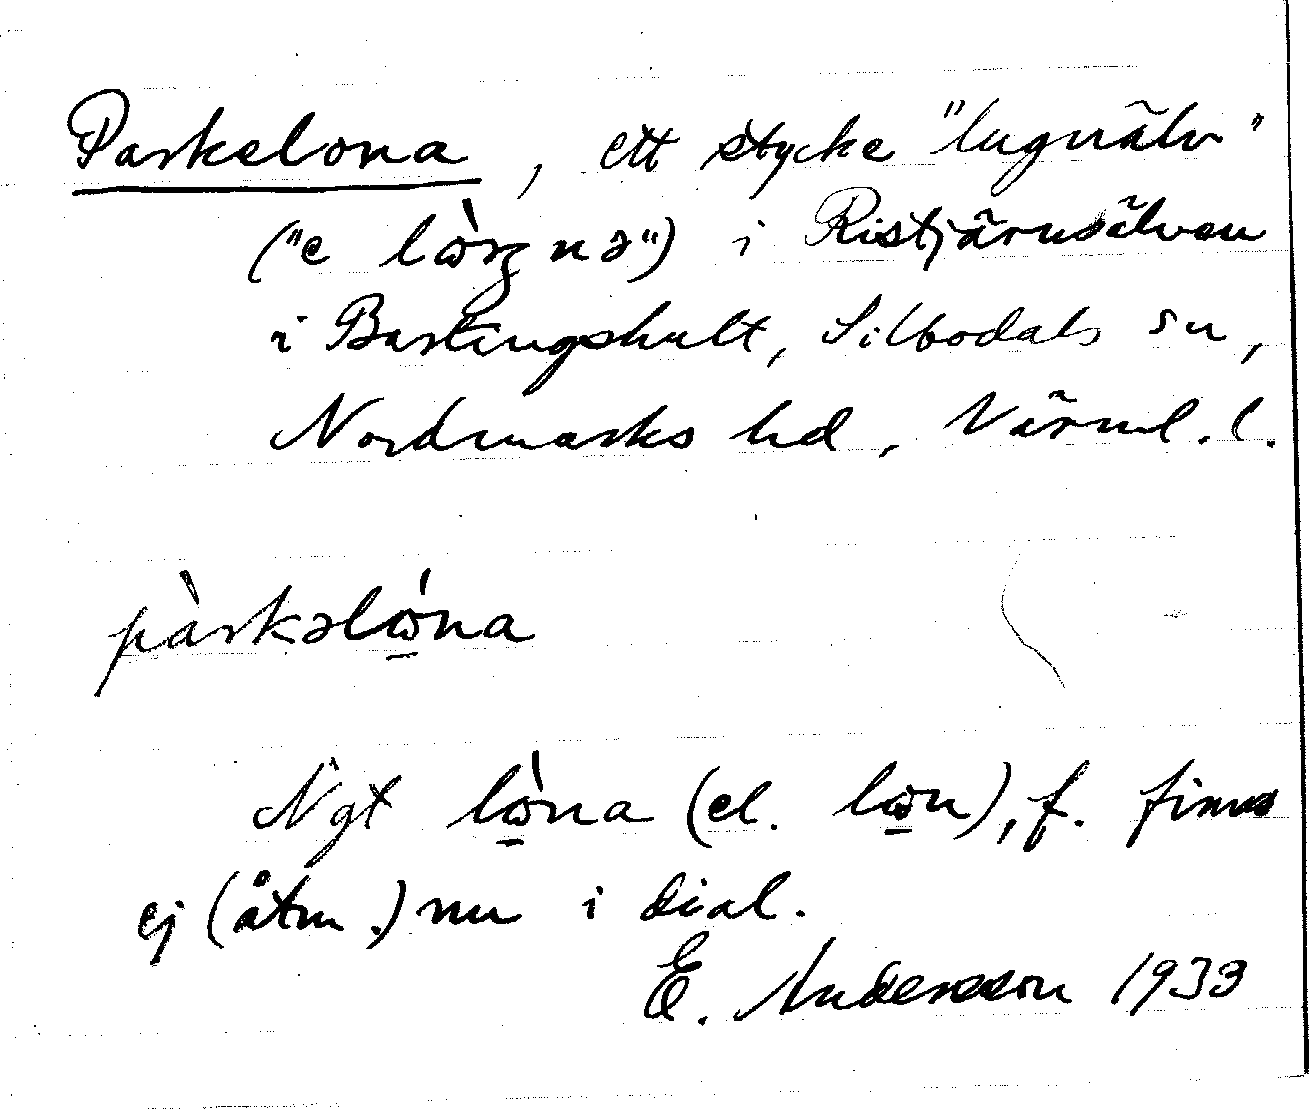 Parkelona, ett stycke "lugnälv"
("e lὼŋnə") i Ristjärnsälven
i Bastingshult, Silbodals sn,
Nordmarks hd, Värml. l.
pàrkəlώ̱na
Ngt lὼ̱na (el. lω̱n), f. finns
ej (åtm.) nu i dial.
E. Andersson 1933